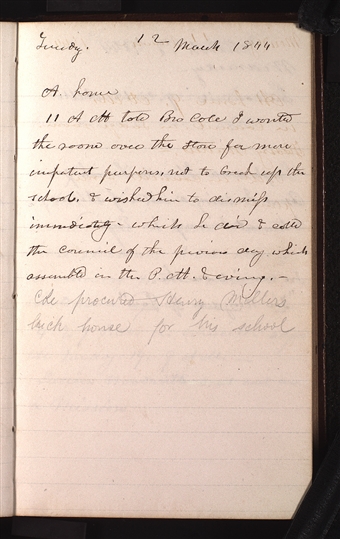 Tuesday. 12 March 1844
At home
11 A M told Bro Cole I wanted
the room over the Store for more
important purposes, not to break up the
school. & wished him to dismiss
immediately - which he did & called
the council of the previous day which
assembled in the P.M. & evening. -
Cole procured Henry Millers
brick house for his school